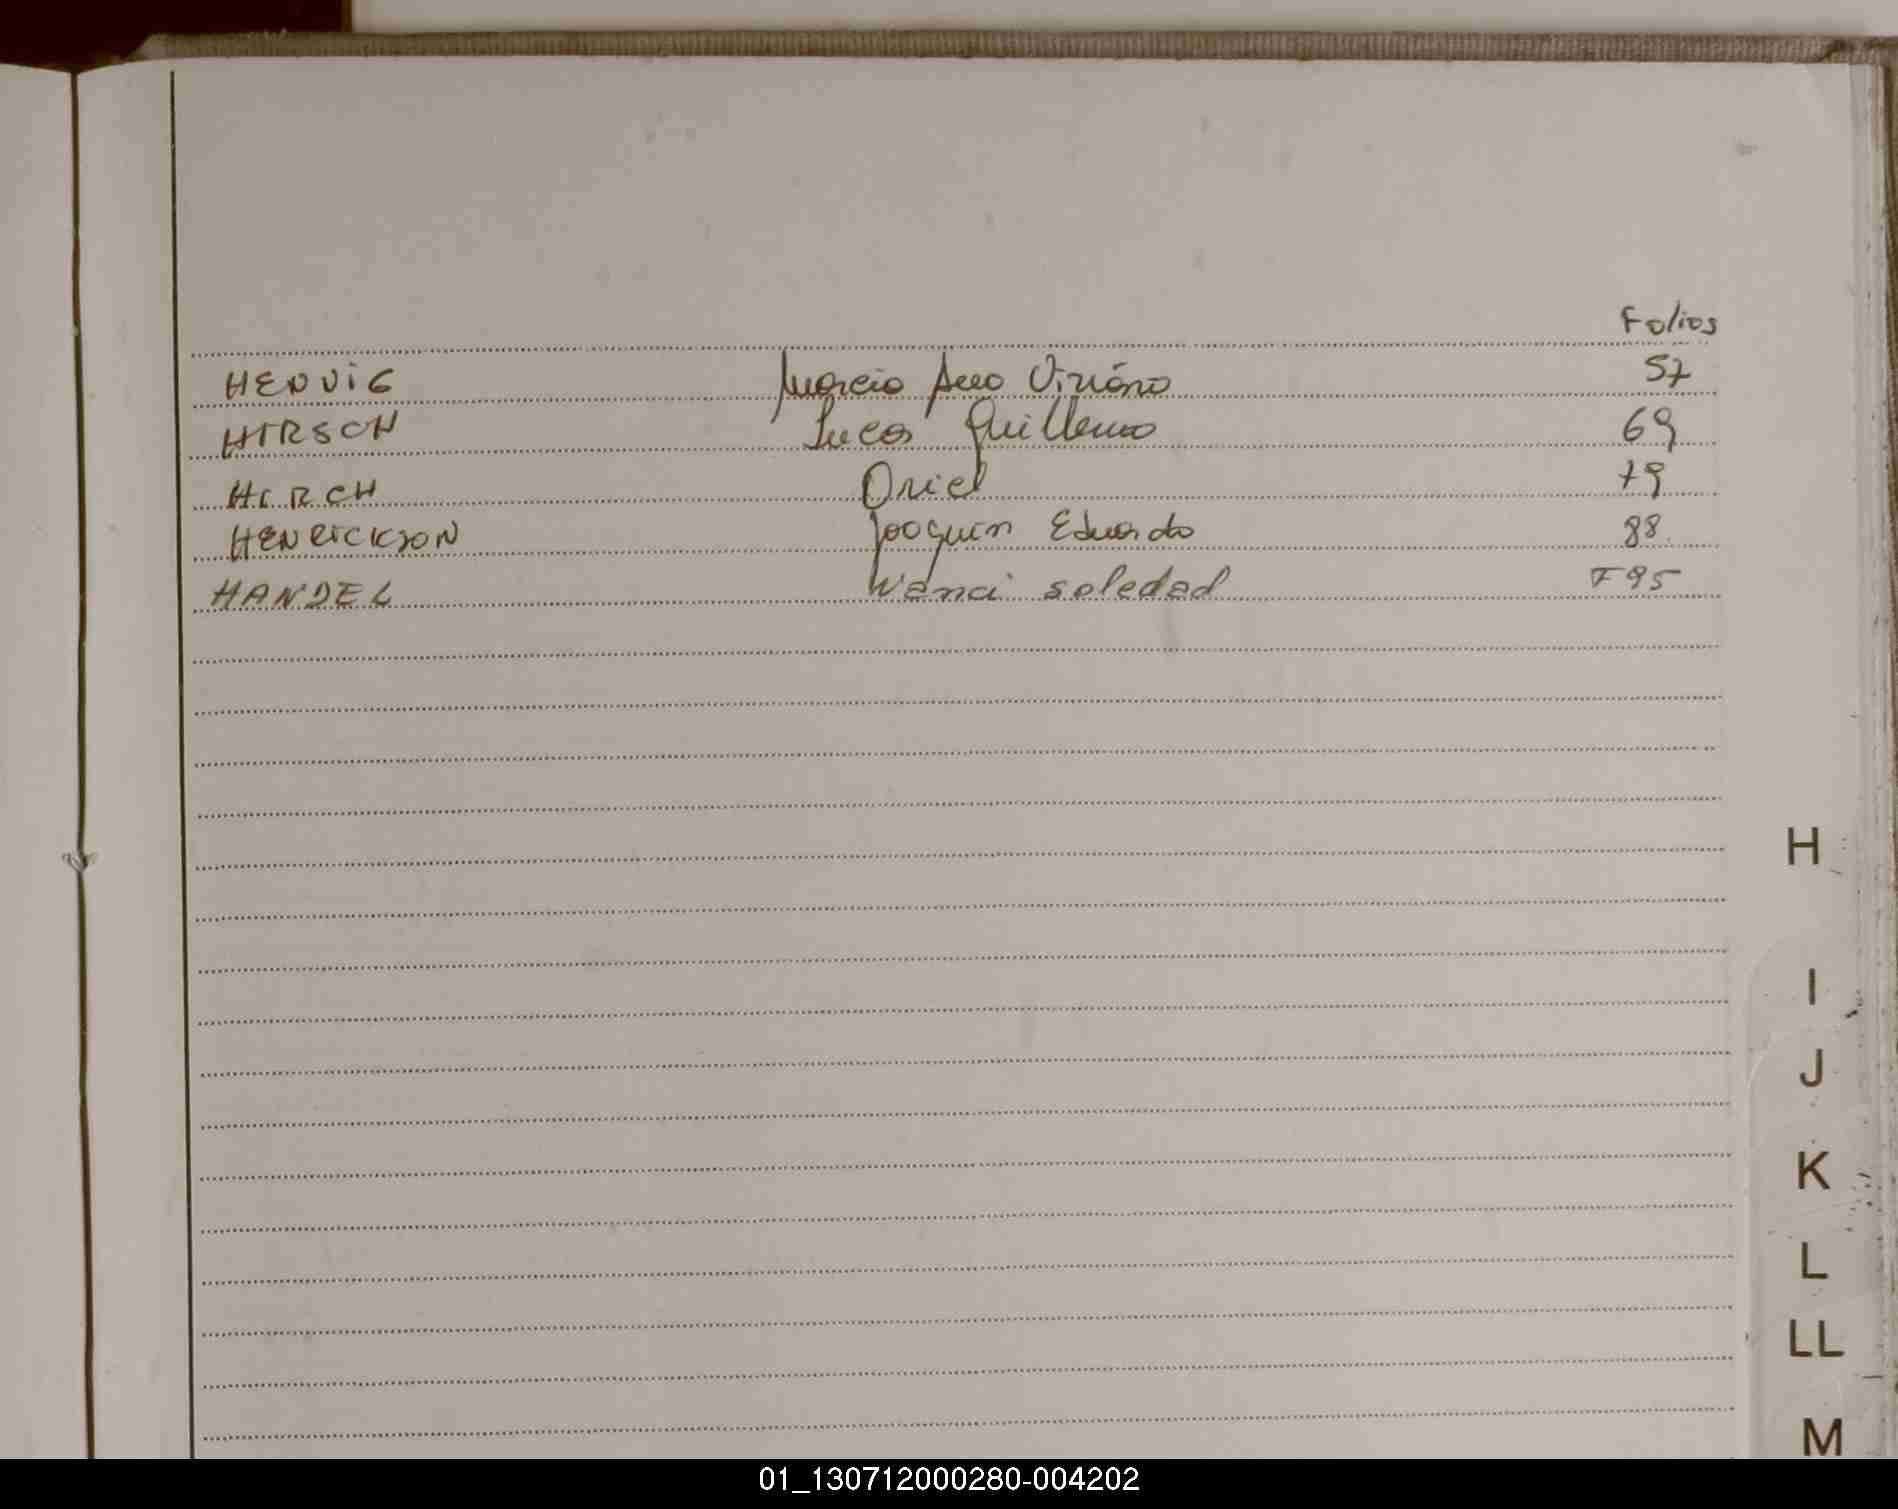 Folios
HENVIG Marcio 57
HIRSCH Lucas Guillermo 69
HIRCH Oriel 79
HENRICKSON Joaquin Eduardo 88
HANDEL Nanci soledad F 95
H
I
J
K
L
LL
M
01_130712000280-004202